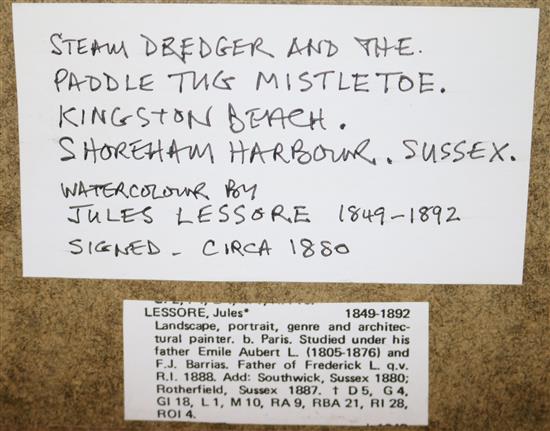 STEAM DREDGER AND THE.
PADDLE TUG MISTLETOE.
KINGSTON BEACH.
SHOREHAM HARBOUR. SUSSEX.
WATERCOLOUR BY
JULES LESSORE 1849-1892
SIGNED - CIRCA 1880
LESSORE, Jules* 1849-1892
Landscape, portrait, genre and architec-
tural painter. b. Paris. Studied under his
father Emile Aubert L. (1805-1876) and
F.J. Barrias. Father of Frederick L. q.v.
R.I. 1888. Add: Southwick, Sussex 1880;
Rotherfield, Sussex 1887. † D 5, G 4,
GI 18, L 1, M 10, RA 9, RBA 21, RI 28,
ROI 4.